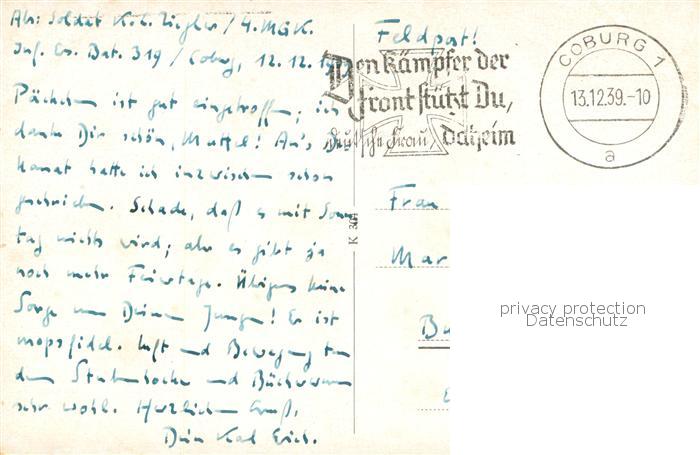 Abs: Soldat K. E. Ziegler / 4. MGK.
Inf. Ers. Bat. 319 / Coburg, 12.12.
Päckchen ist gut eingetroffen; ich
danke Dir schön, Muttel! An's
hatte ich inzwischen schon
geschrieben. Schade, daß es mit Sonn
tag nichts wird; aber es gibt ja
noch mehr Feiertage. Übrigens keine
Sorge um Deinen Jungen! Er ist
mopsfidel. Luft und Bewegung tun
dem Stubenhocker und Bücherwurm
sehr wohl. Herzlichen Gruß,
Dein Karl Erich.
Feldpost!
Den Kämpfer der
Front stützt Du,
deutsche Frau, daheim
COBURG 1
13.12.39.-10
a
K 301
Frau
Mar
Bu
privacy protection
Datenschutz